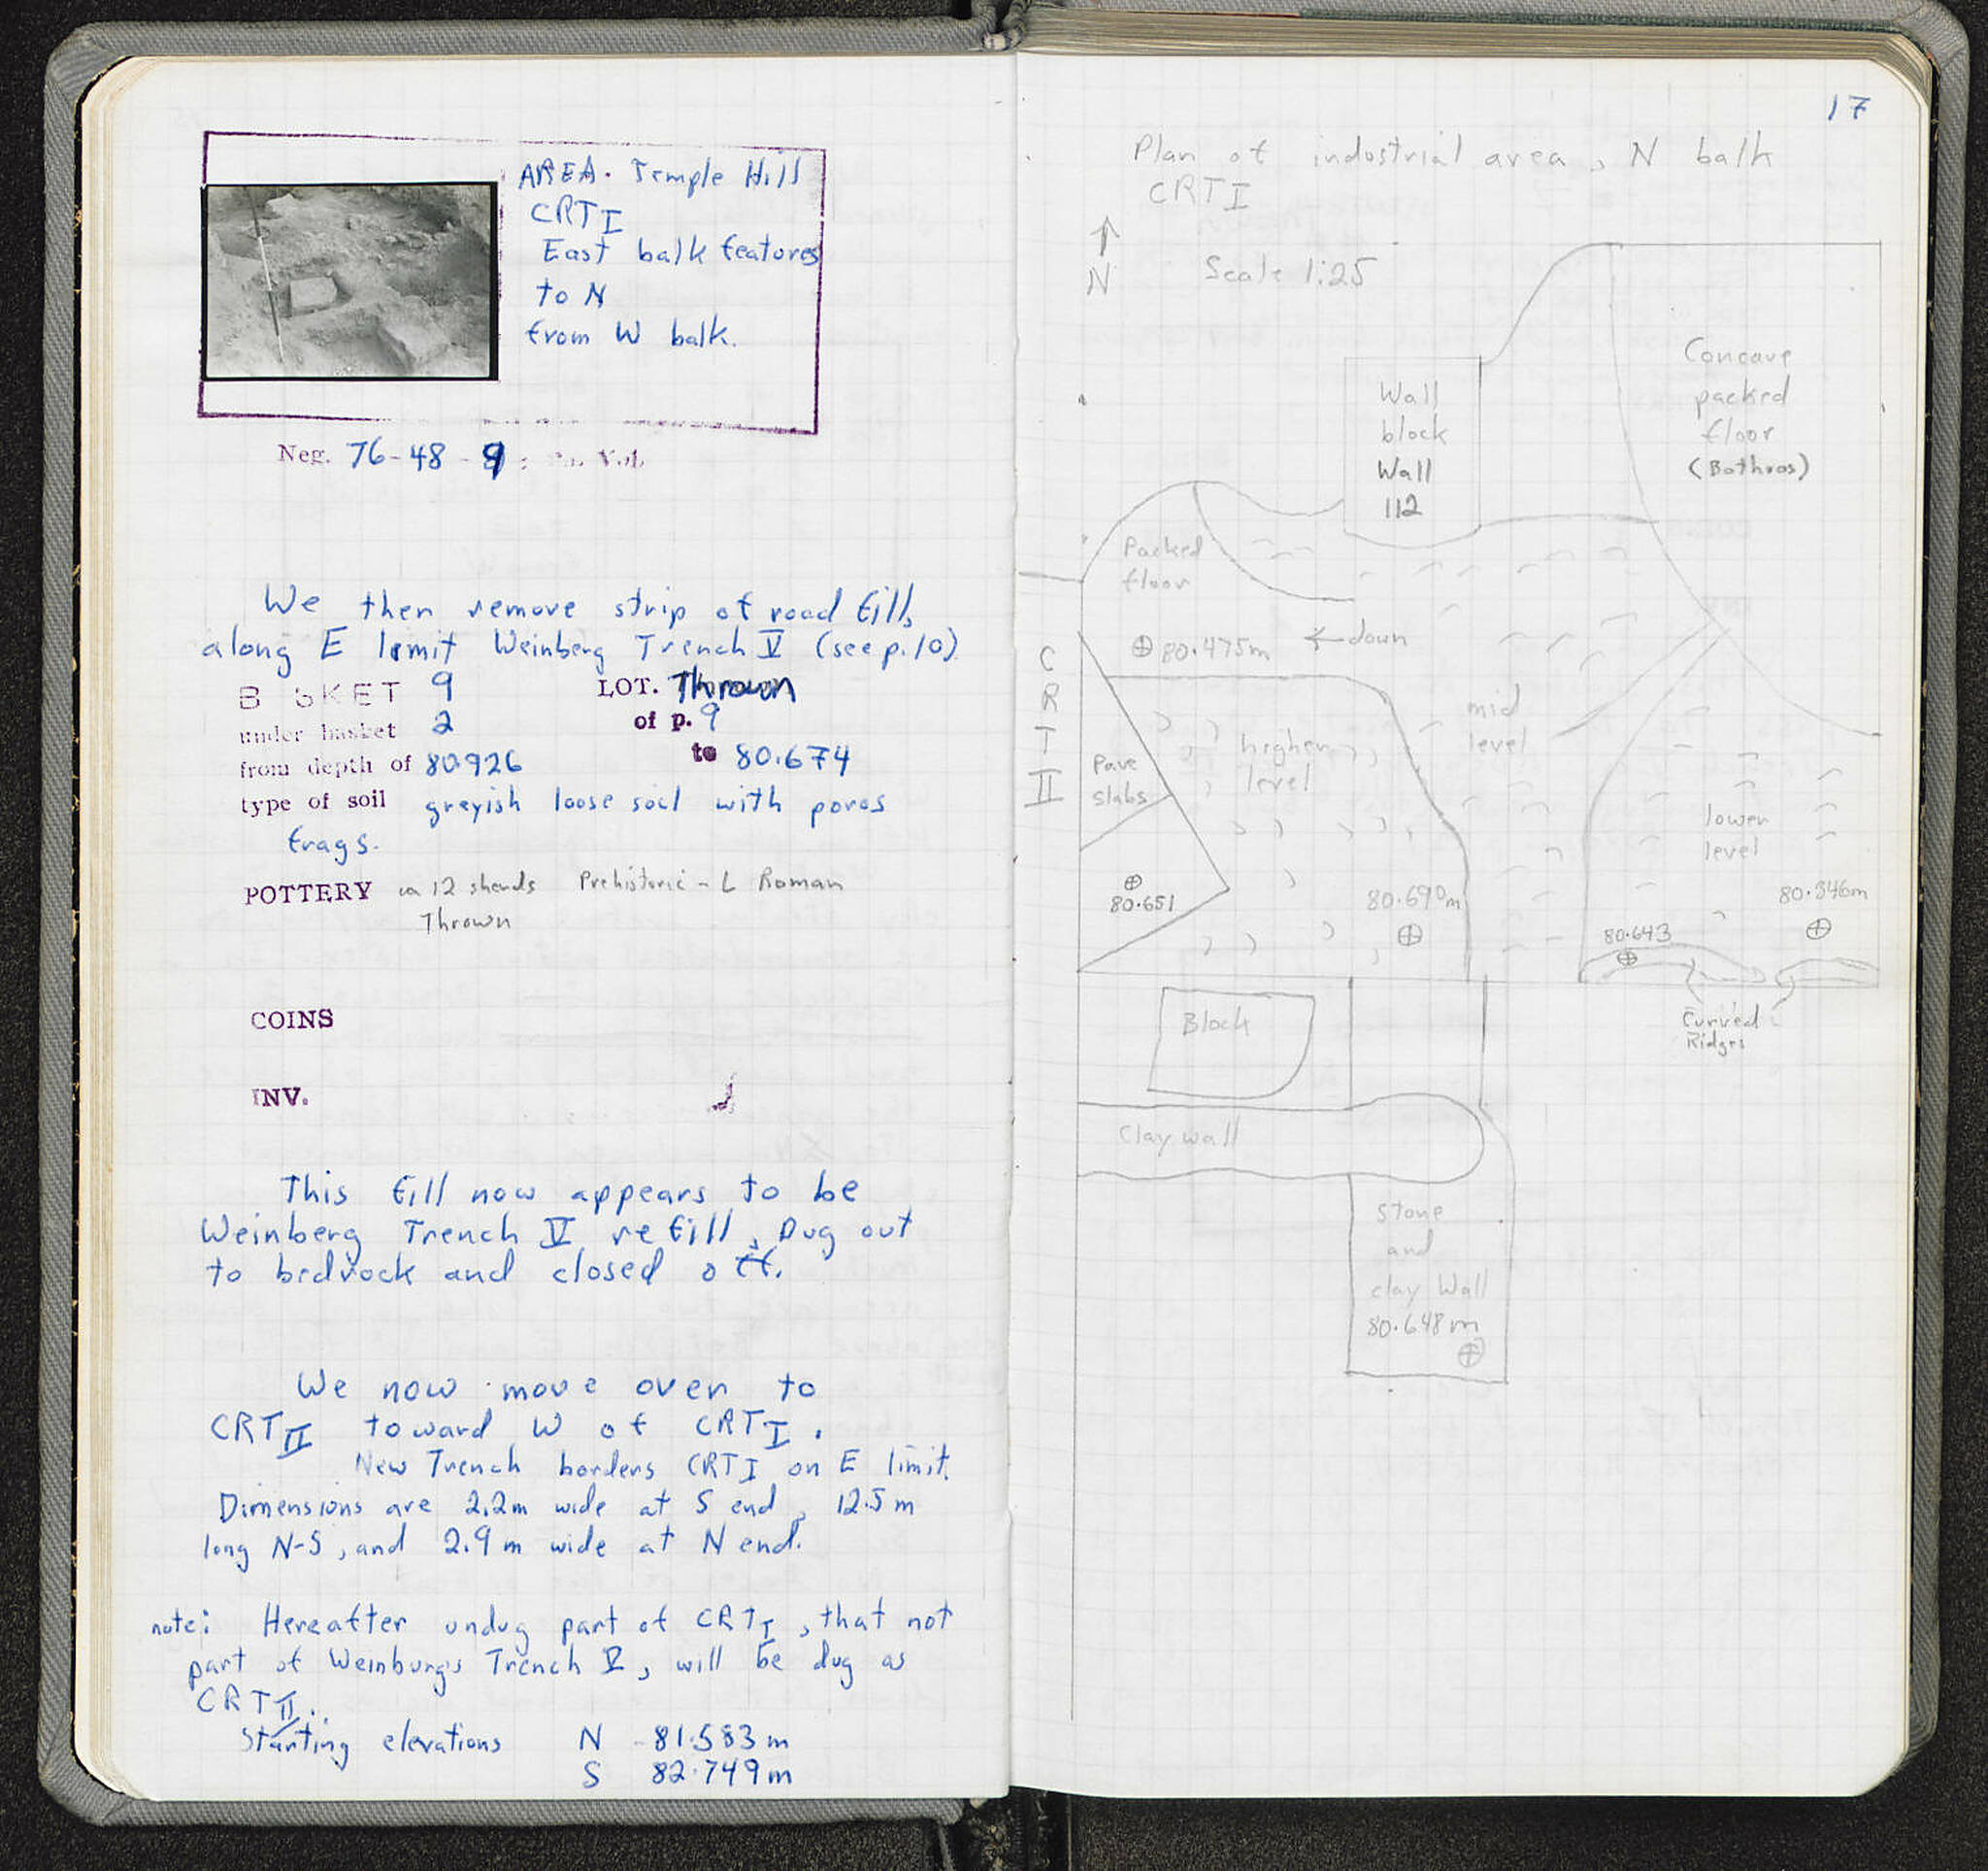 AREA. Temple Hill
CRT I
East balk features
to N
from W balk.
Neg. 76-48-9
We then remove strip of road fill,
along E limit Weinberg Trench V (see p. 10)
B SKET 9 LOT. Thrown
under basket 2 of p. 9
from depth of 80.926 to 80.674
type of soil greyish loose soil with poros
frags.
POTTERY ca 12 sherds Prehistoric - L Roman
Thrown
COINS
INV.
This fill now appears to be
Weinberg Trench V refill, Dug out
to bedrock and closed off.
We now move over to
CRT II toward W of CRT I.
New Trench borders CRT I on E limit.
Dimensions are 2.2m wide at S end, 12.5 m
long N-S, and 2.9 m wide at N end.
note: Hereafter undug part of CRT I, that not
part of Weinburg's Trench V, will be dug as
CRT II.
Starting elevations N 81.583 m
S 82.749 m
17
Plan of industrial area, N balk
CRT I
N
Scale 1:25
Concave
packed
floor
(Bothros)
Wall
block
Wall
112
Packed
floor
80.475m ← down
CRT II
mid
level
higher
level
Pave
slabs
lower
level
80.651
80.690m
80.643
80.846m
Curved
Ridges
Block
Clay wall
stone
and
clay Wall
80.648m